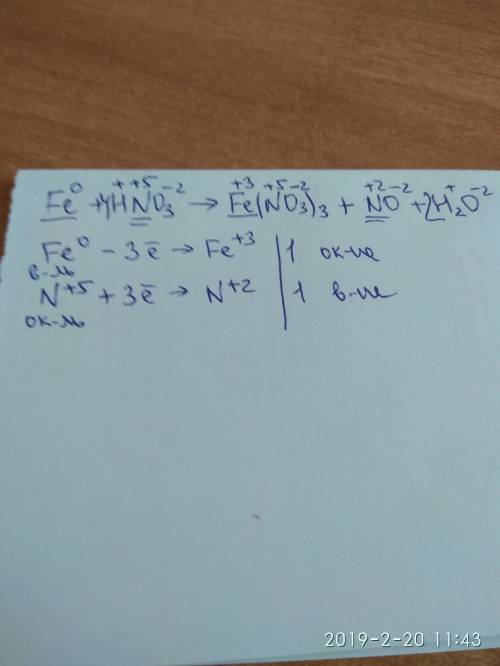 Fe⁰ + 4H⁺N⁺⁵O₃⁻² → Fe⁺³(N⁺⁵O₃⁻²)₃ + N⁺²O⁻² + 2H₂⁺O⁻²
Fe⁰ - 3ē → Fe⁺³ | 1 ок-ие
в-ль
N⁺⁵ + 3ē → N⁺² | 1 в-ие
ок-ль
2019-2-20 11:43